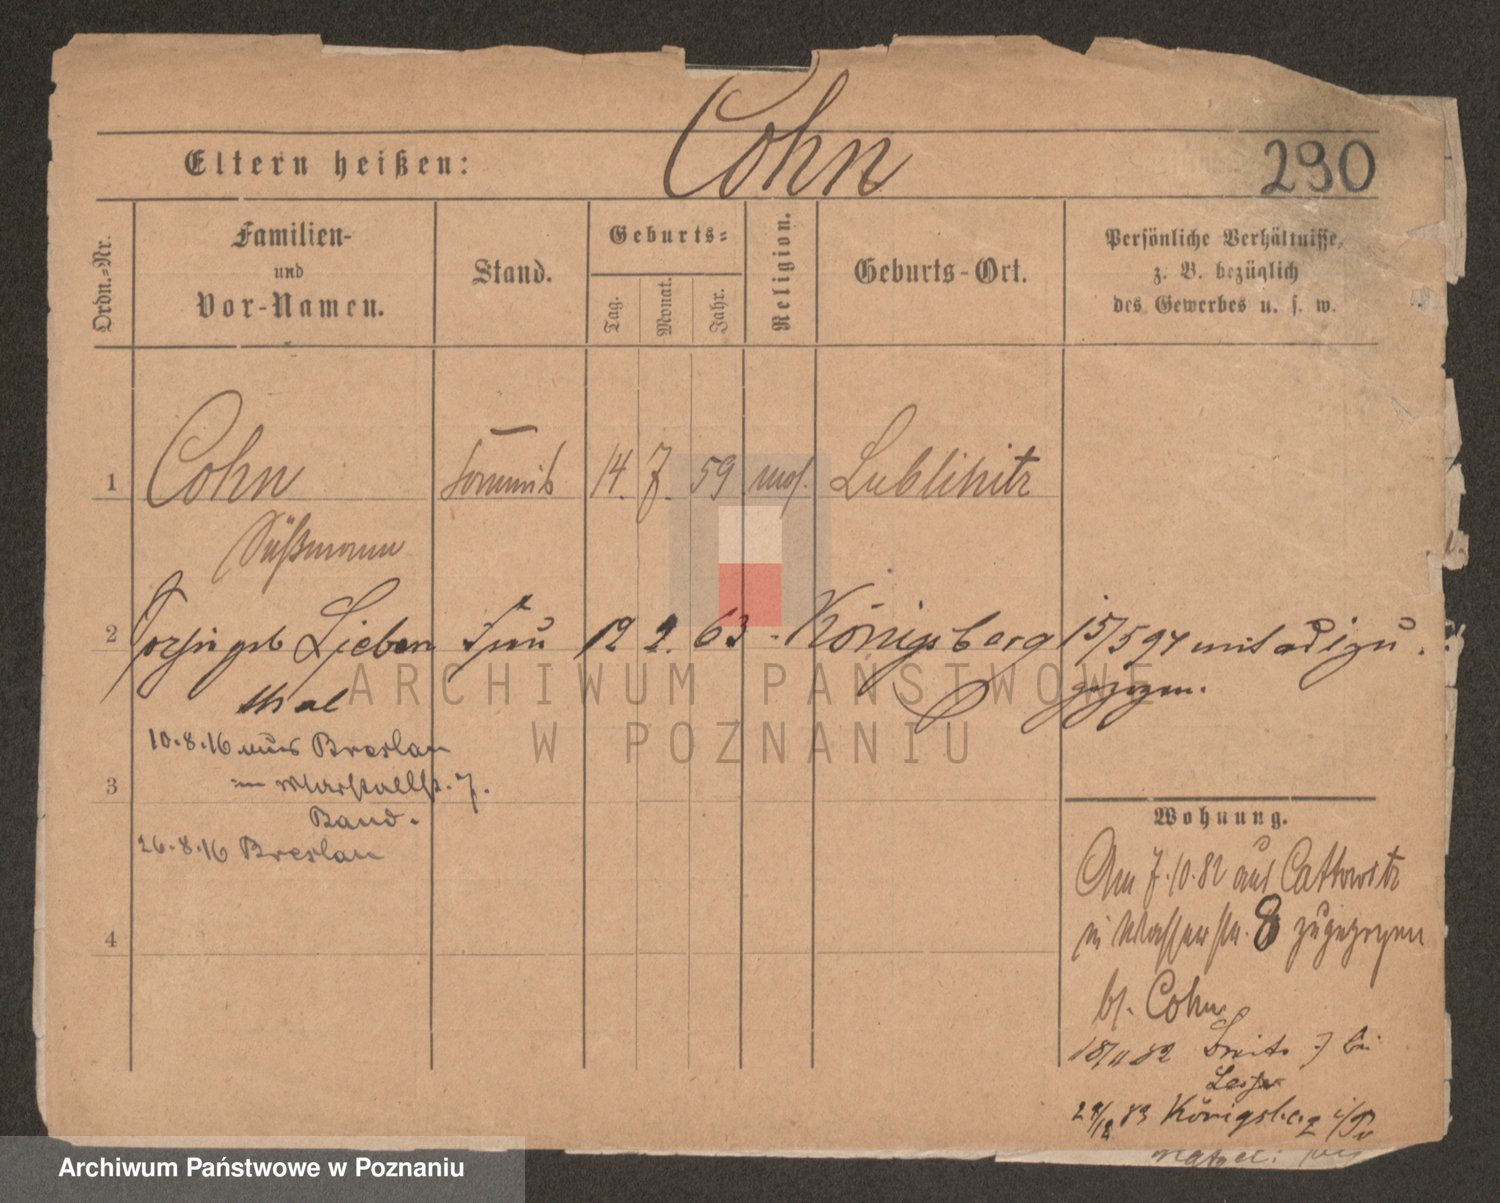 Cohn
Eltern heißen:
290
Ordn.=Nr.
Familien-
und
Vor-Namen.
Stand.
Geburts=
Tag.
Monat.
Jahr.
Religion.
Geburts-Ort.
Persönliche Verhältnisse,
z. B. bezüglich
des Gewerbes u. s. w.
1 Cohn Commis 14. 7. 59 mos. Lublinitz
Süßmann
2 geb Lieben Frau 12 2. 63 - Königsberg 15/5 94 mit
thal gezogen.
10.8.16 aus Breslau
Marstallstr. 7.
3
Band.
26.8.16 Breslau
Wohnung.
Am 7.10.82 aus Cattowitz
in Wasserstr. 8 zugezogen
4
b/. Cohn
18/11 82 Breite 7 bei
28/12 83 Königsberg i/Pr
ARCHIWUM PAŃSTWOWE
W POZNANIU
Archiwum Państwowe w Poznaniu